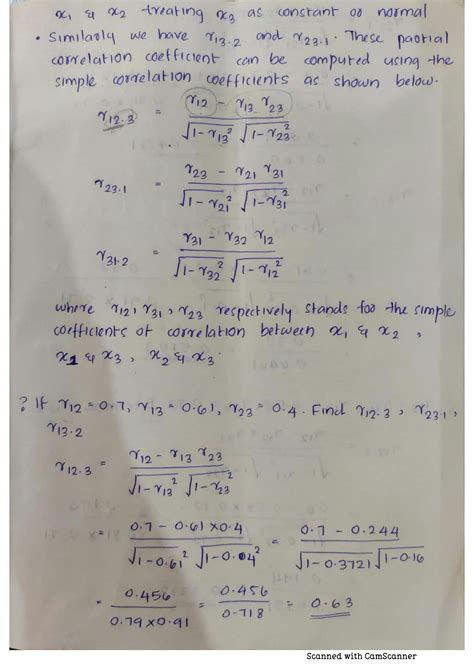 x₁ & x₂ treating x₃ as constant or normal
• Similarly we have r₁₃.₂ and r₂₃.₁. These partial
correlation coefficient can be computed using the
simple correlation coefficients as shown below.
r₁₂.₃ = (r₁₂ - r₁₃ r₂₃) / (√(1-r₁₃²) √(1-r₂₃²))
r₂₃.₁ = (r₂₃ - r₂₁ r₃₁) / (√(1-r₂₁²) √(1-r₃₁²))
r₃₁.₂ = (r₃₁ - r₃₂ r₁₂) / (√(1-r₃₂²) √(1-r₁₂²))
where r₁₂, r₃₁, r₂₃ respectively stands for the simple
coefficients of correlation between x₁ & x₂,
x₁ & x₃, x₂ & x₃.
? If r₁₂ = 0.7, r₁₃ = 0.61, r₂₃ = 0.4. Find r₁₂.₃, r₂₃.₁,
r₁₃.₂
r₁₂.₃ = (r₁₂ - r₁₃ r₂₃) / (√(1-r₁₃²) √(1-r₂₃²))
= (0.7 - 0.61×0.4) / (√(1-0.61²) √(1-0.04²)) = (0.7 - 0.244) / (√(1-0.3721) √(1-0.16))
= 0.456 / (0.79×0.91) = 0.456 / 0.718 = 0.63
Scanned with CamScanner